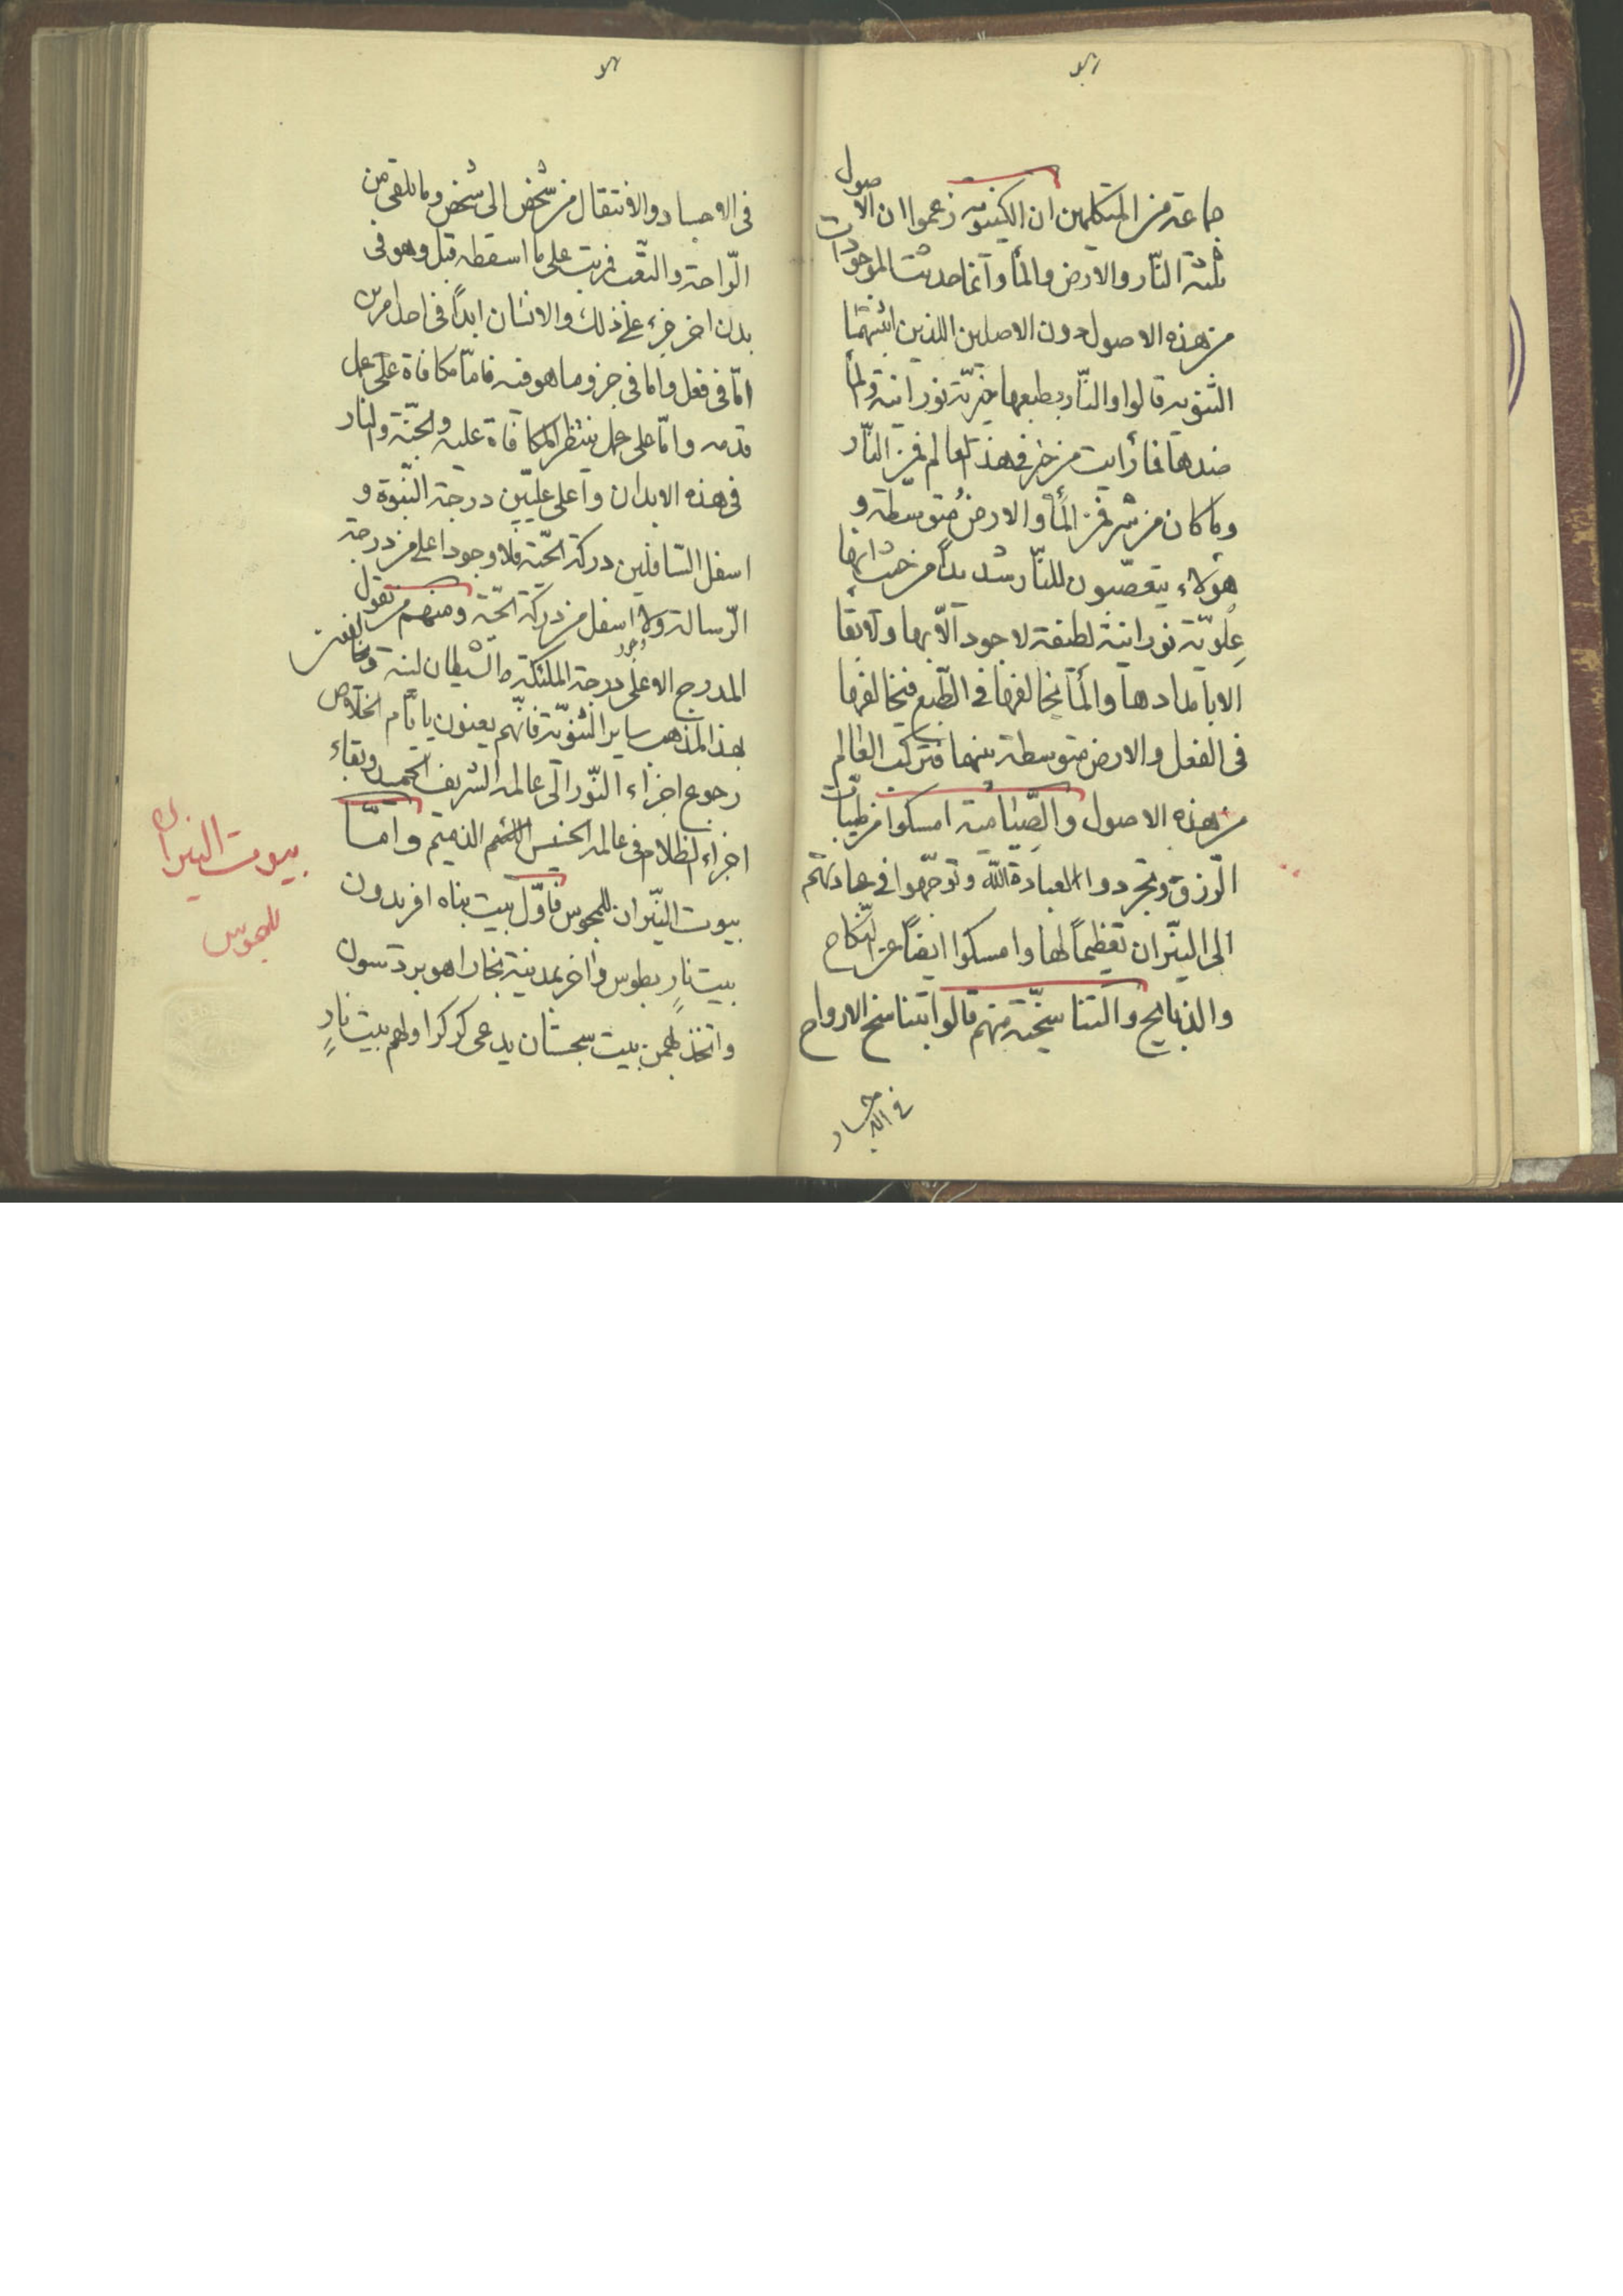 جماعة من المتكلمين ان الكينويه زعموا ان الاصول
ثلثة النّار والارض والمأ وآنما حدثت الموجودات
من هذه الاصول دون الاصلين اللذين اثبتهما
الثنويه قالوا والنّار بطبعها خيريّة نورانية والمأ
ضدها فما رأيت من خير فى هذا العالم فمن النّار
وما كان من شر فمن المأ والارض متوسطة و
هؤلاء يتعصّبون للنّار شديداً من حيث انها
عِلويّة نورانية لطيفة لا وجود الّا بها ولا بقأ
الا بامدادها والمأ يخالفها فى الطّبع فيخالفها
فى الفعل والارض متوسطة بينهما فتركب العالم
من هذه الاصول والصّيامية امسكوا من طيبات
الرّزق وتجردوا لعبادة اللّه وتوجّهوا فى عباداتهم
الى النيّران تعظيماً لها وامسكوا ايضاً عن النّكاح
والذبايح والتناسخيّة منهم قالوا بتناسخ الارواح
فى الاجساد
فى الاجساد والانتقال من شخص الى شخص وما يلقى من
الرّاحة والتّعب فمرتب على ما اسقطه قبل وهو فى
بدن اخر جزء على ذلك والانسان ابداً فى احد امرين
امّا فى فعل واما فى جزو ما هو فيه فامّا مكافاة على عمل
قدمه وامّا على عمل ينتظر المكافاة عليه والجنّة والنار
فى هذه الابدان واعلى عليّين درجة النبّوة و
اسفل السّافلين دركة الحيّة فلا وجود اعلى من درجة
الرّسالة ولا وجود اسفل من دركة الحيّة ومنهم من يقول
المدرج الاعلى درجة الملئكة والشيطان لنية ويخالفون
بهذا المذهب ساير الثنويّة فانّهم يعنون بايّام الخلاص
رجوع اجزاء النّور الى عالمه الشريف الحميد وبقاء
اجزاء الظلام فى عالمه الخسيس الذميم وامّا
بيوت النيّران للمجوس فاوّل بيت بناه افريدون
بيت نارٍ بطوس واخر بمدينة بخارا هو بردسون
واتخذ بهمن بيت سجستان يدعى كركرا ولهم بيت نارٍ
بيوت النيران
للمجوس